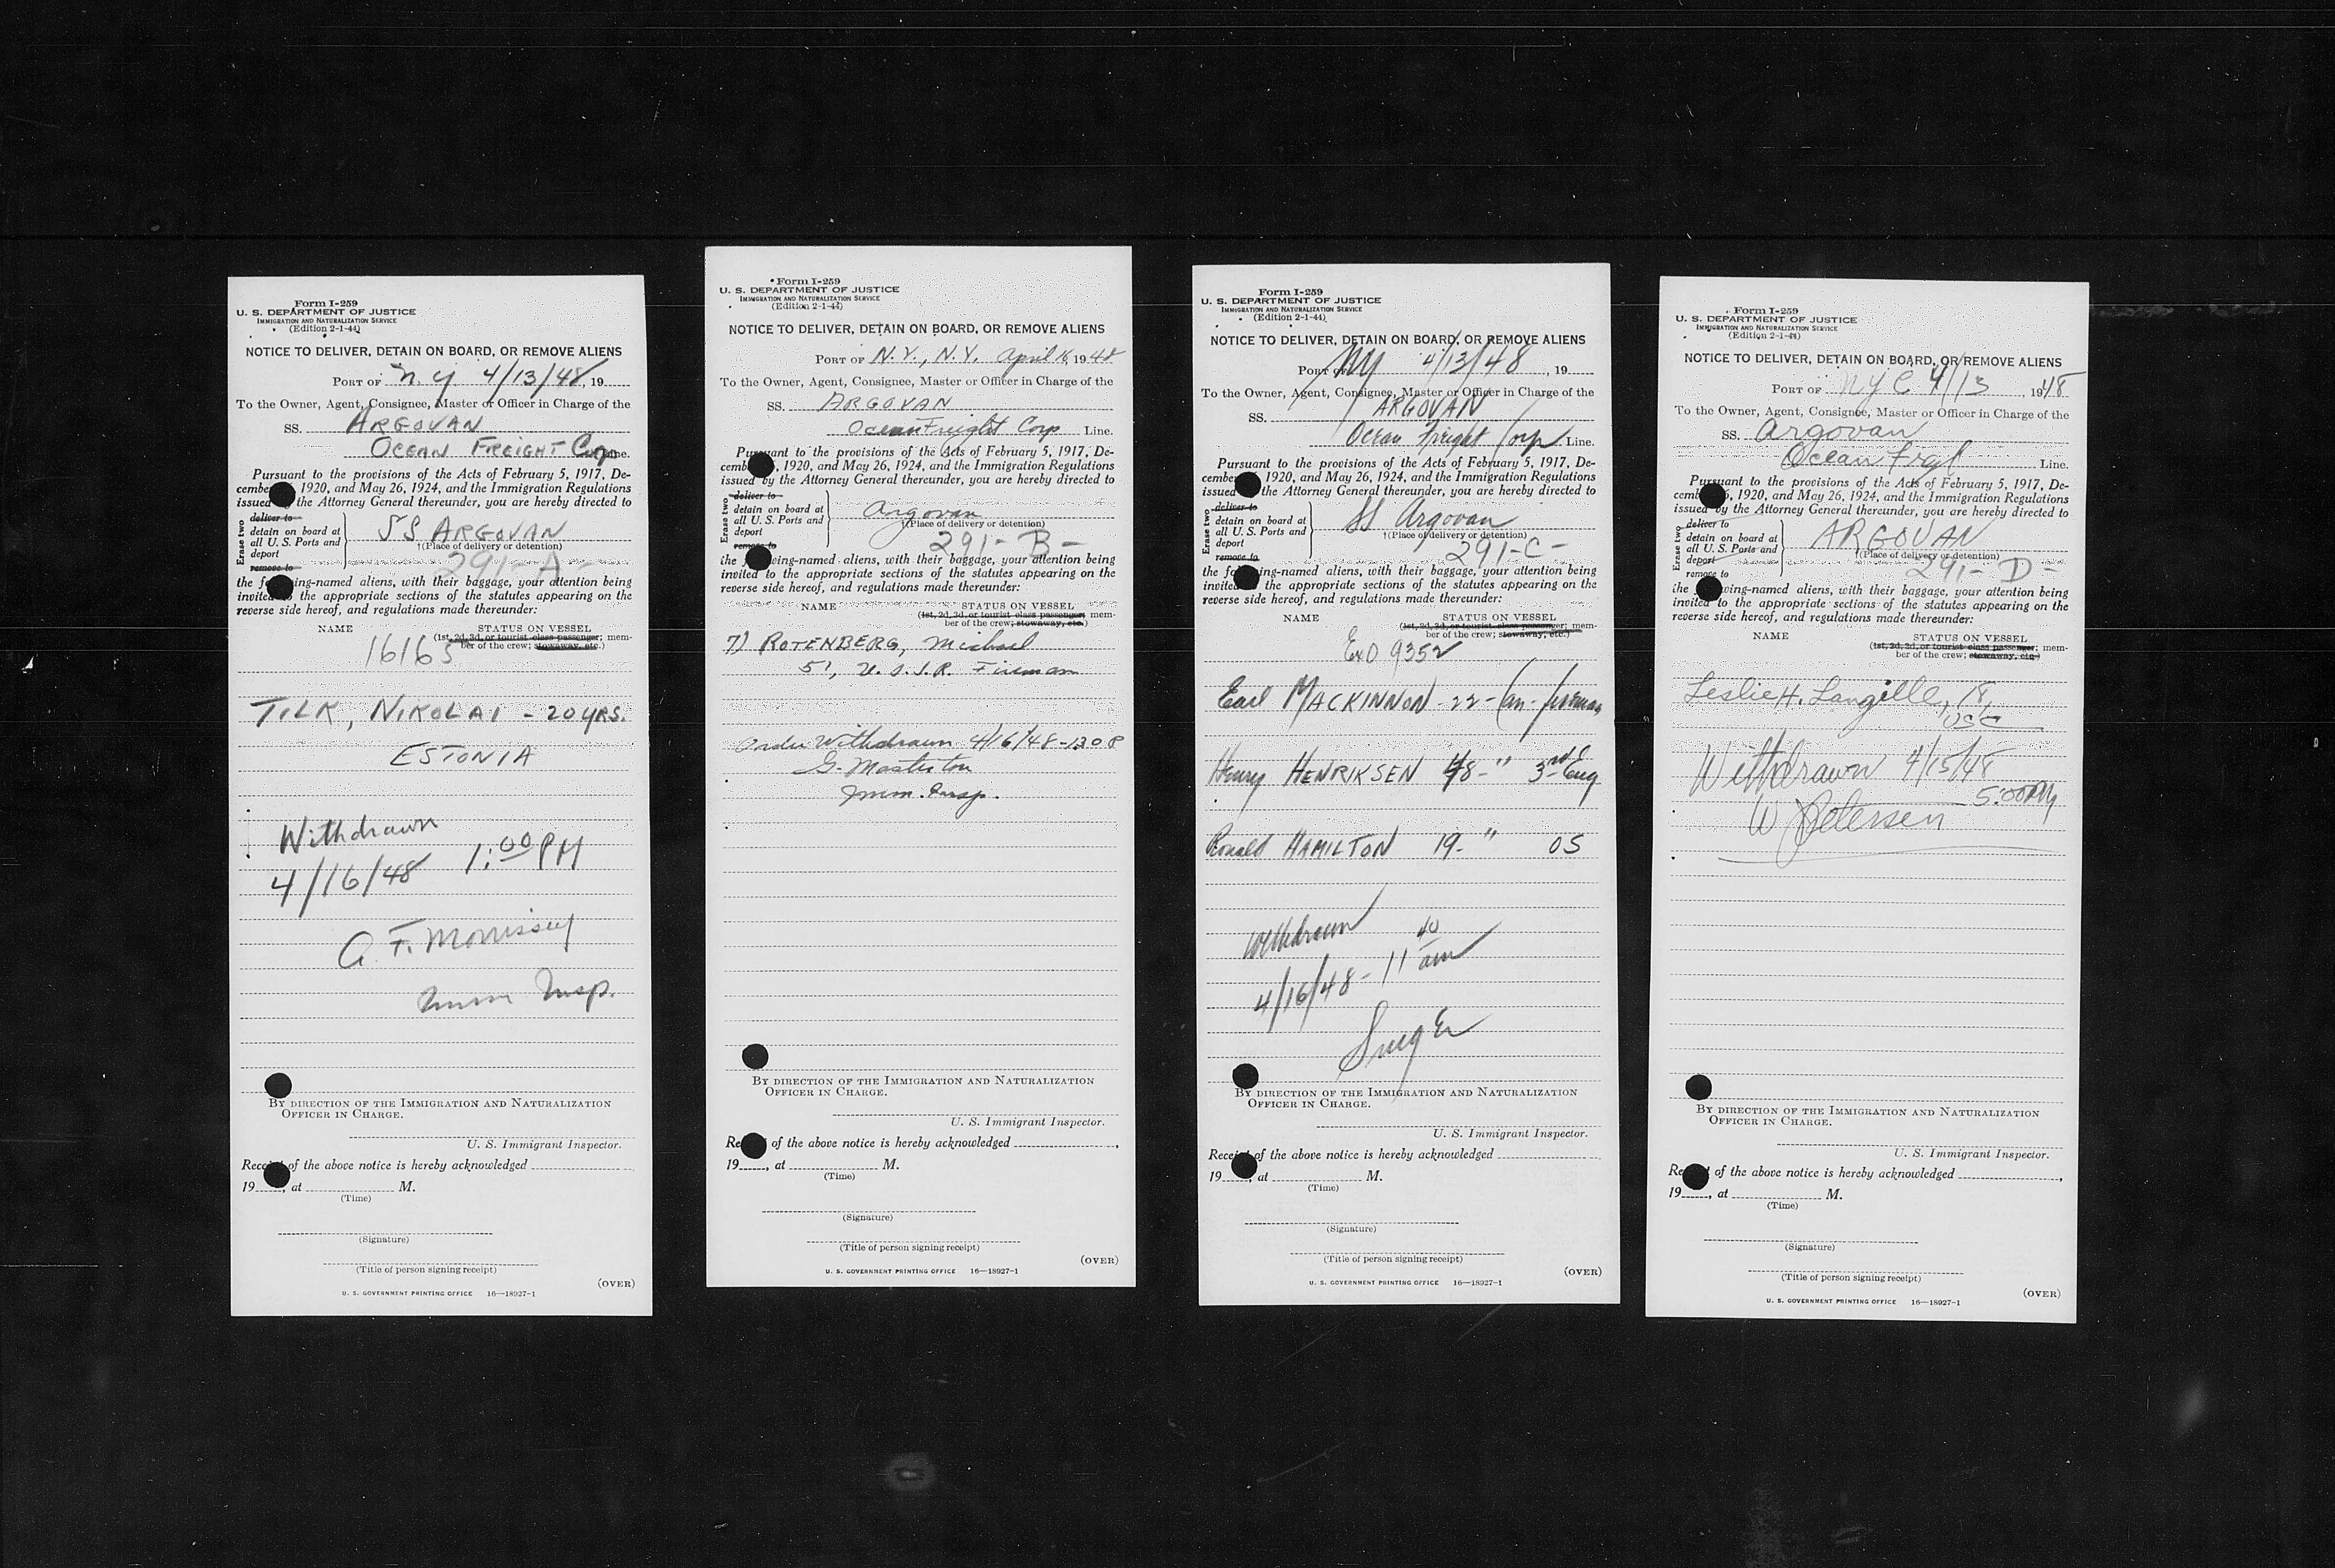 Form I-259
U. S. DEPARTMENT OF JUSTICE
IMMIGRATION AND NATURALIZATION SERVICE
(Edition 2-1-44)
NOTICE TO DELIVER, DETAIN ON BOARD, OR REMOVE ALIENS
PORT OF N.Y 4/13/48, 19
To the Owner, Agent, Consignee, Master or Officer in Charge of the
SS. ARGOVAN
OCEAN FREIGHT Corp Line.
Pursuant to the provisions of the Acts of February 5, 1917, De-
cember 1920, and May 26, 1924, and the Immigration Regulations
issued the Attorney General thereunder, you are hereby directed to
Erase two
deliver to
detain on board at
all U. S. Ports and
deport
remove to
SS ARGOVAN
†(Place of delivery or detention)
291-A-
the following-named aliens, with their baggage, your attention being
invited the appropriate sections of the statutes appearing on the
reverse side hereof, and regulations made thereunder:
NAME STATUS ON VESSEL
(1st, 2d, 3d, or tourist class passenger; mem-
ber of the crew; stowaway, etc.)
16165
TILK, NIKOLAI - 20 YRS.
ESTONIA
Withdrawn
4/16/48 1:00 PM
A. F. Morrissey
Imm Insp.
BY DIRECTION OF THE IMMIGRATION AND NATURALIZATION
OFFICER IN CHARGE.
U. S. Immigrant Inspector.
Receipt of the above notice is hereby acknowledged
19, at M.
(Time)
(Signature)
(Title of person signing receipt)
(OVER)
U. S. GOVERNMENT PRINTING OFFICE 16—18927-1
Form I-259
U. S. DEPARTMENT OF JUSTICE
IMMIGRATION AND NATURALIZATION SERVICE
(Edition 2-1-44)
NOTICE TO DELIVER, DETAIN ON BOARD, OR REMOVE ALIENS
PORT OF N.Y., N.Y. April 1948
To the Owner, Agent, Consignee, Master or Officer in Charge of the
SS. ARGOVAN
Ocean Freight Corp Line.
Pursuant to the provisions of the Acts of February 5, 1917, De-
cember 1920, and May 26, 1924, and the Immigration Regulations
issued by the Attorney General thereunder, you are hereby directed to
Erase two
deliver to
detain on board at
all U. S. Ports and
deport
remove to
Argovan
†(Place of delivery or detention)
291-B-
the following-named aliens, with their baggage, your attention being
invited to the appropriate sections of the statutes appearing on the
reverse side hereof, and regulations made thereunder:
NAME STATUS ON VESSEL
(1st, 2d, 3d, or tourist class passenger; mem-
ber of the crew; stowaway, etc.)
7) ROTENBERG, Michael
51, U.S.S.R. Fireman
Order Withdrawn 4/16/48-130 P
G. Masterton
Imm. Insp.
BY DIRECTION OF THE IMMIGRATION AND NATURALIZATION
OFFICER IN CHARGE.
U. S. Immigrant Inspector.
Receipt of the above notice is hereby acknowledged
19, at M.
(Time)
(Signature)
(Title of person signing receipt)
(OVER)
U. S. GOVERNMENT PRINTING OFFICE 16—18927-1
Form I-259
U. S. DEPARTMENT OF JUSTICE
IMMIGRATION AND NATURALIZATION SERVICE
(Edition 2-1-44)
NOTICE TO DELIVER, DETAIN ON BOARD, OR REMOVE ALIENS
PORT OF NY 4/13/48, 19
To the Owner, Agent, Consignee, Master or Officer in Charge of the
SS. ARGOVAN
Ocean Freight Corp Line.
Pursuant to the provisions of the Acts of February 5, 1917, De-
cember 1920, and May 26, 1924, and the Immigration Regulations
issued the Attorney General thereunder, you are hereby directed to
Erase two
deliver to
detain on board at
all U. S. Ports and
deport
remove to
SS Argovan
†(Place of delivery or detention)
291-C-
the following-named aliens, with their baggage, your attention being
invited to the appropriate sections of the statutes appearing on the
reverse side hereof, and regulations made thereunder:
NAME STATUS ON VESSEL
(1st, 2d, 3d, or tourist class passenger; mem-
ber of the crew; stowaway, etc.)
ExO 9352
Earl MACKINNON - 22 - Can - fireman
Henry HENRIKSEN 48 - " 3rd Eng
Ronald HAMILTON 19 - " OS
Withdrawn
4/16/48 - 11 40 am
BY DIRECTION OF THE IMMIGRATION AND NATURALIZATION
OFFICER IN CHARGE.
U. S. Immigrant Inspector.
Receipt of the above notice is hereby acknowledged
19, at M.
(Time)
(Signature)
(Title of person signing receipt)
(OVER)
U. S. GOVERNMENT PRINTING OFFICE 16—18927-1
Form I-259
U. S. DEPARTMENT OF JUSTICE
IMMIGRATION AND NATURALIZATION SERVICE
(Edition 2-1-44)
NOTICE TO DELIVER, DETAIN ON BOARD, OR REMOVE ALIENS
PORT OF NYC 4/13, 1948
To the Owner, Agent, Consignee, Master or Officer in Charge of the
SS. Argovan
Ocean Frgt Line.
Pursuant to the provisions of the Acts of February 5, 1917, De-
cember 5, 1920, and May 26, 1924, and the Immigration Regulations
issued by the Attorney General thereunder, you are hereby directed to
Erase two
deliver to
detain on board at
all U. S. Ports and
deport
remove to
ARGOVAN
†(Place of delivery or detention)
291-D-
the following-named aliens, with their baggage, your attention being
invited to the appropriate sections of the statutes appearing on the
reverse side hereof, and regulations made thereunder:
NAME STATUS ON VESSEL
(1st, 2d, 3d, or tourist class passenger; mem-
ber of the crew; stowaway, etc.)
Leslie H. Langille, 18,
USC
Withdrawn 4/15/48
5:00 PM
W Petersen
BY DIRECTION OF THE IMMIGRATION AND NATURALIZATION
OFFICER IN CHARGE.
U. S. Immigrant Inspector.
Receipt of the above notice is hereby acknowledged
19, at M.
(Time)
(Signature)
(Title of person signing receipt)
(OVER)
U. S. GOVERNMENT PRINTING OFFICE 16—18927-1